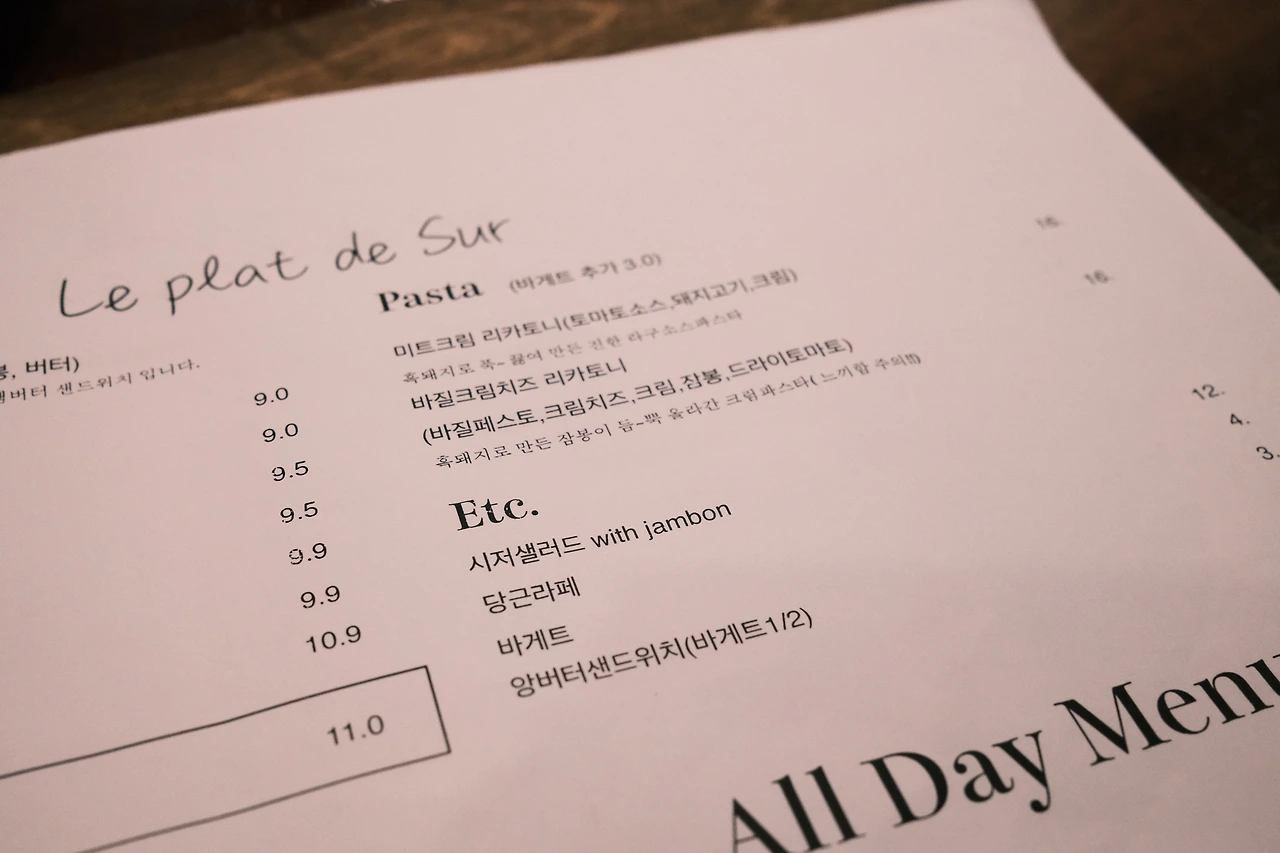 Le plat de Sur
봉, 버터)
버터 샌드위치 입니다.
9.0
9.0
9.5
9.5
9.9
9.9
10.9
11.0
Pasta (바게트 추가 3.0)
미트크림 리카토니(토마토소스,돼지고기,크림) 16.
흑돼지로 푹~ 끓여 만든 진한 라구소스파스타
바질크림치즈 리카토니 16.
(바질페스토,크림치즈,크림,잠봉,드라이토마토)
흑돼지로 만든 잠봉이 듬~뿍 올라간 크림파스타( 느끼함 주의!!!)
Etc.
시저샐러드 with jambon 12.
당근라페 4.
바게트 3.
앙버터샌드위치(바게트1/2)
All Day Menu